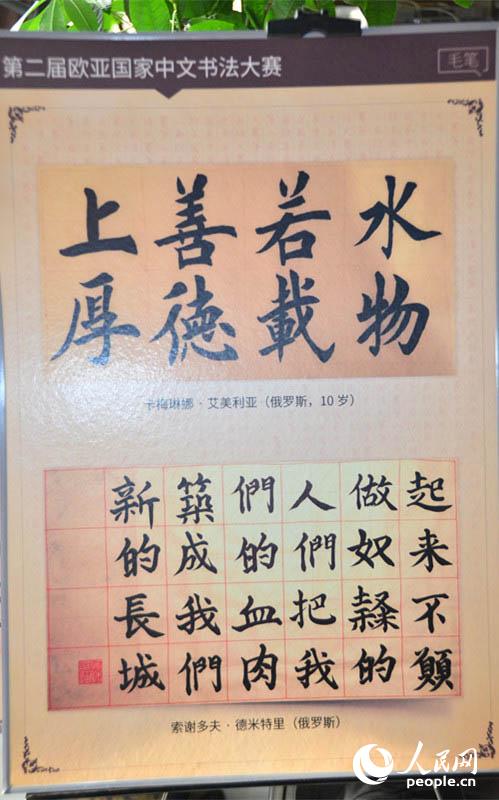 第二届欧亚国家中文书法大赛
毛笔
上善若水
厚德載物
卡梅琳娜·艾美利亚（俄罗斯，10岁）
起来不願
做奴隸的
人們把我
們的血肉
築成我們
新的長城
索谢多夫·德米特里（俄罗斯）
人民网
people.cn